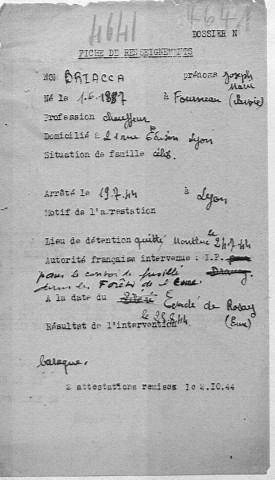 4641
4641
DOSSIER N
FICHE DE RENSEIGNEMENTS
NOM BRIACCA prénoms Joseph
Marie
Né le 1.6.1887 à Fourneau (Savoie)
Profession chauffeur
Domicilié à 21 rue Edison Lyon
Situation de famille céli.
Arrêté le 19.7.44 à Lyon
Motif de l'arrestation
Lieu de détention quitté Montluc le 24.7.44
Autorité française intervenue : I.P. pour Drancy.
dans les Forêts de l'Eure
A la date du Evadé de Rosay
le 23.8.44 (Eure)
Résultat de l'intervention
baraque.
2 attestations remises le 2.10.44